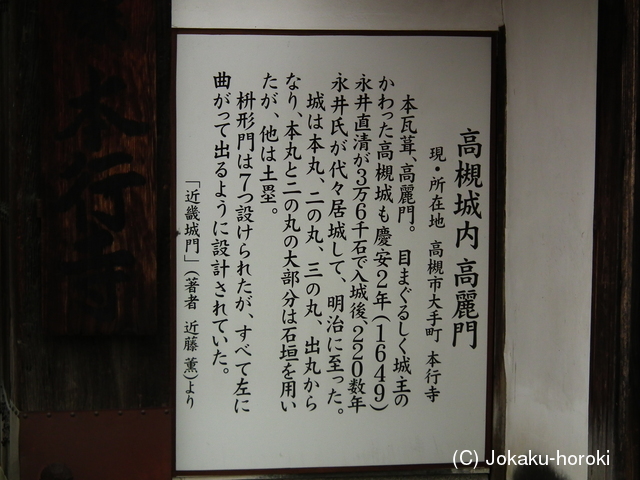 高槻城内 高麗門
現・所在地 高槻市大手町 本行寺
本瓦葺、高麗門。 目まぐるしく城主の
かわった高槻城も慶安2年(1649)
永井直清が3万6千石で入城後、220数年
永井氏が代々居城して、明治に至った。
城は本丸、二の丸、三の丸、出丸から
なり、本丸と二の丸の大部分は石垣を用い
たが、他は土塁。
枡形門は7つ設けられたが、すべて左に
曲がって出るように設計されていた。
「近畿城門」(著者 近藤 薫)より
本行寺
(C) Jokaku-horoki